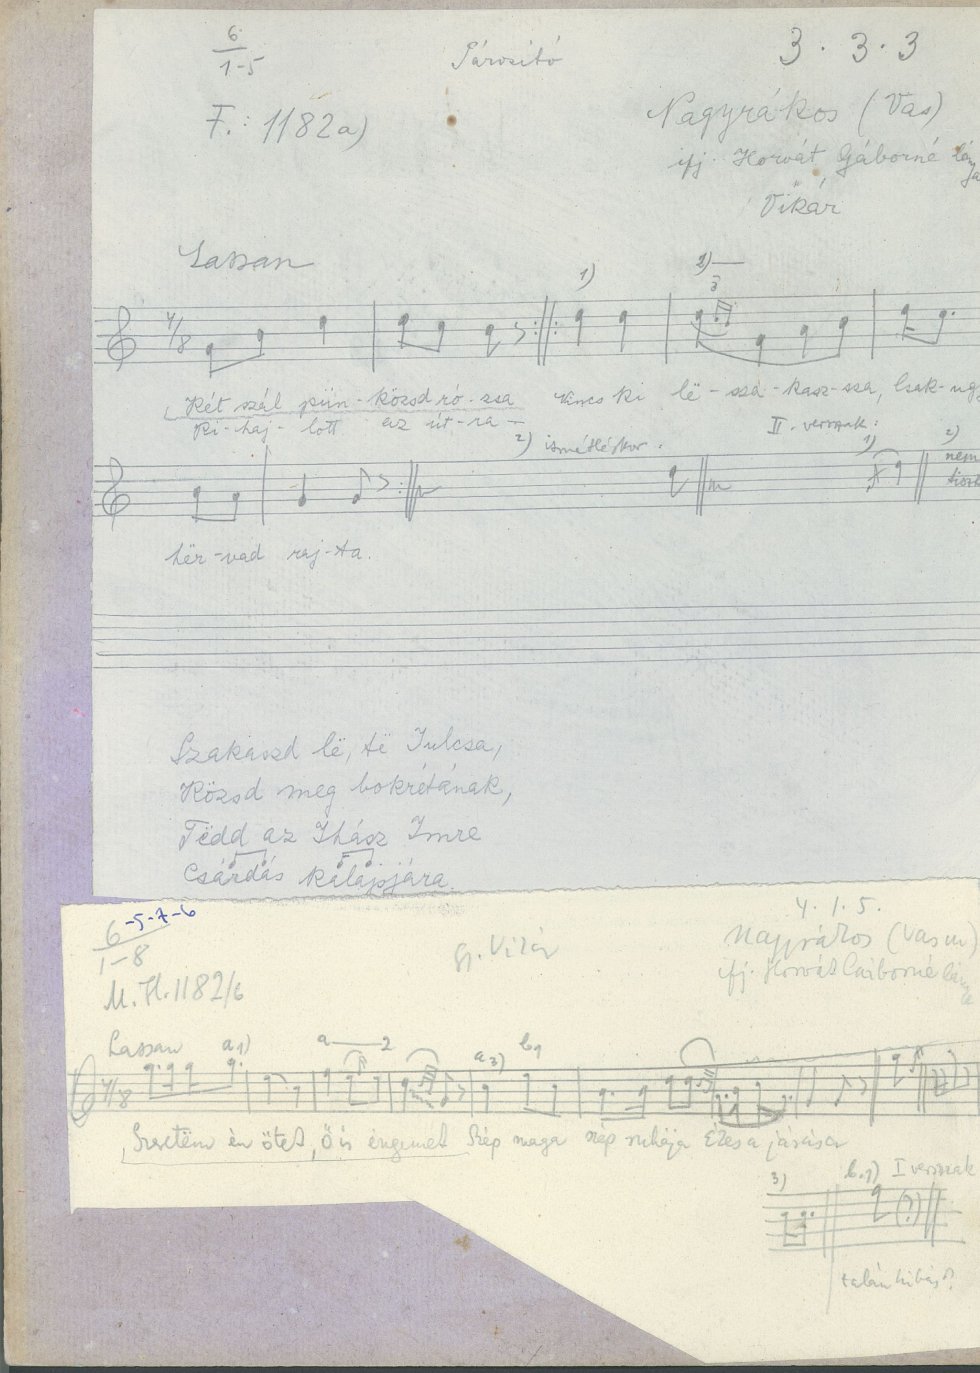 6
1-5
Párosító
3. 3. 3
F.: 1182a)
Nagyrákos (Vas)
ifj. Horvát Gáborné lánya
Vikár
Lassan
1)
2)
3
4/8
Két szál pün-közsd ró-zsa nincs ki lë-sza-kasz-sza, Csak-ug
Ki-haj-lott az út-ra
2) ismétléskor.
II. versszak:
1)
2)
nem
hër-vad raj-ta.
Szakaszd lë, të Julcsa,
Közsd meg bokrétának,
Tëdd az Ihász Imre
Csárdás kalapjára.
6-5-7-6
1-8
4. 1. 5.
Gy. Vikár
Nagyrákos (Vas m)
ifj. Horvát Gáborné lánya
M.H. 1182/b
Lassan
a 1)
a 2
a 3)
b 1
4/8
Szeretëm én ötet, Ő is engemet Szép maga szép ruhája Ékes a járása
3)
b.1) I versszak
(?)
talán hibás?